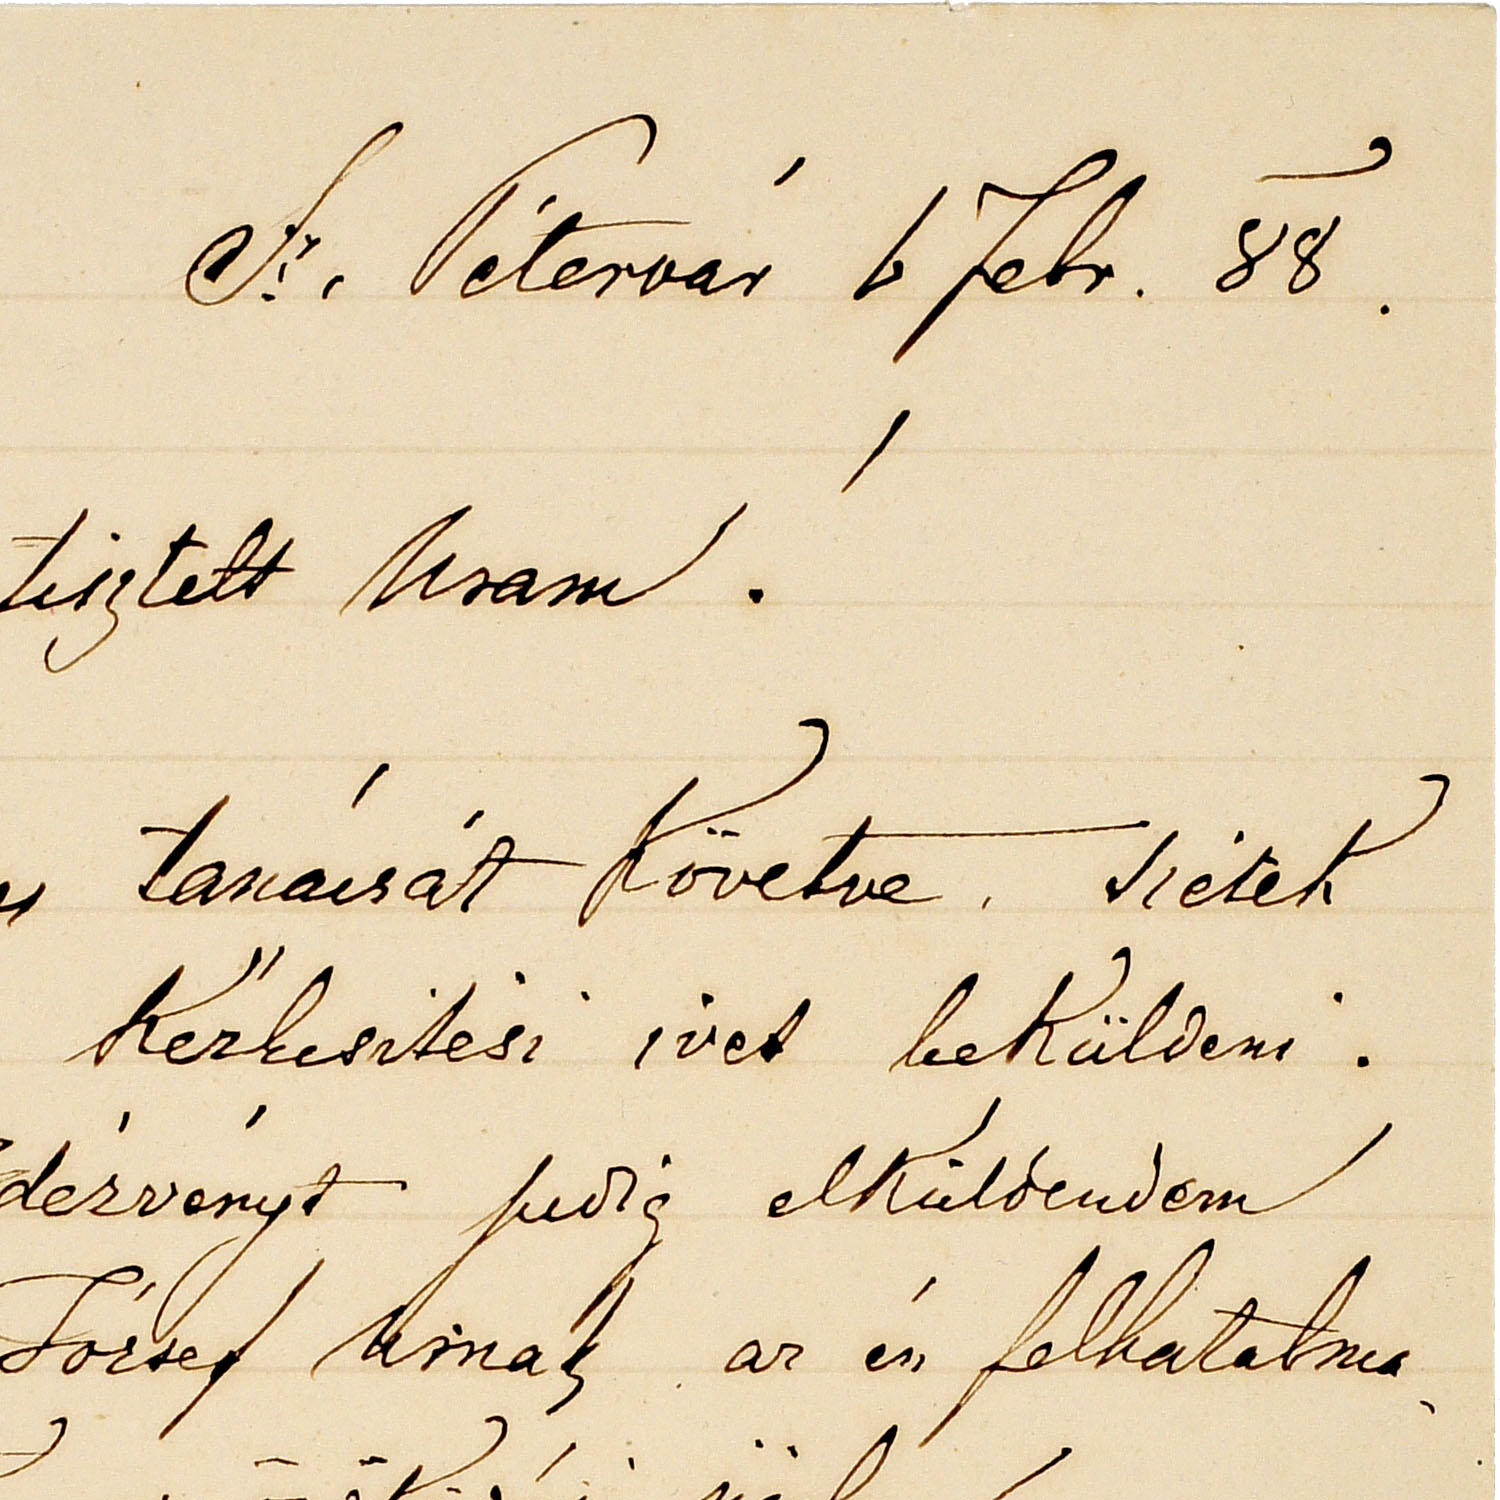 Sz. Pétervár 6 febr. 88.
tisztelt Uram!
tanácsát követve, sietek
kézbesitési ivet beküldeni.
pedig elküldendem
József Urnak az én felhatalma